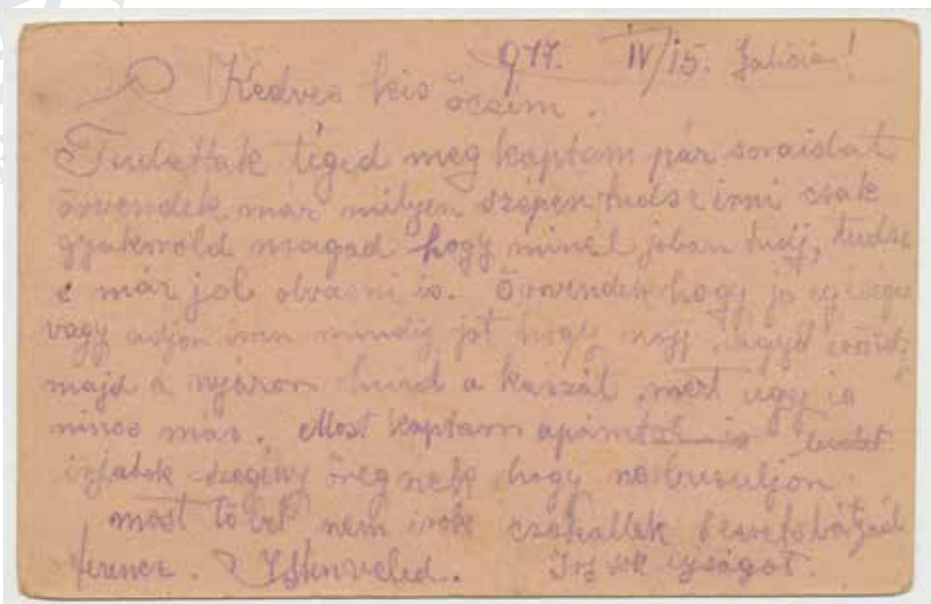 917. IV/15. Galicia!
Kedves kis öcsim.
Tudattak téged meg kaptam pár soraidat
örvendek már milyen szépen tudsz irni csak
gyakorold magad hogy minél joban tudj, tudsz
e már jol olvasni is. Örvendek hogy jó egésége
vagy adjon isten mindig jot hogy nagy
majd a nyáron hurd a kaszát, mert ugy is
nincs más. Most kaptam apámtol is
irjatok szegény öregnek hogy ne busuljon
most töbet nem irok csokollak szerető bátyád
ferencz. Istenveled. Irj sok ujságot.